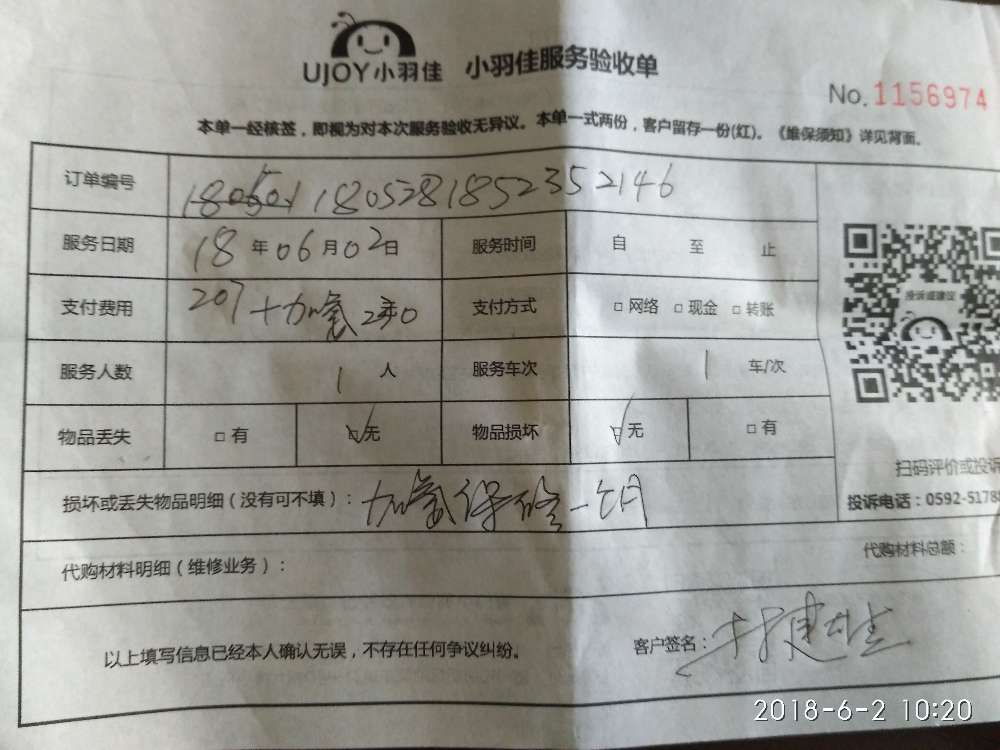 UJOY小羽佳 小羽佳服务验收单
No.1156974
本单一经核签，即视为对本次服务验收无异议。本单一式两份，客户留存一份(红)。《维保须知》详见背面。
订单编号 180528185235 2146
服务日期 18年06月02日 服务时间 自 至 止
支付费用 207+加氟240 支付方式 □网络 □现金 □转账
投诉或建议
服务人数 1人 服务车次 1车/次
物品丢失 □有 ☑无 物品损坏 ☑无 □有
扫码评价或投诉
损坏或丢失物品明细（没有可不填）：加氟保修一个月
投诉电话：0592-5178
代购材料明细（维修业务）： 代购材料总额：
以上填写信息已经本人确认无误，不存在任何争议纠纷。 客户签名：
2018-6-2 10:20